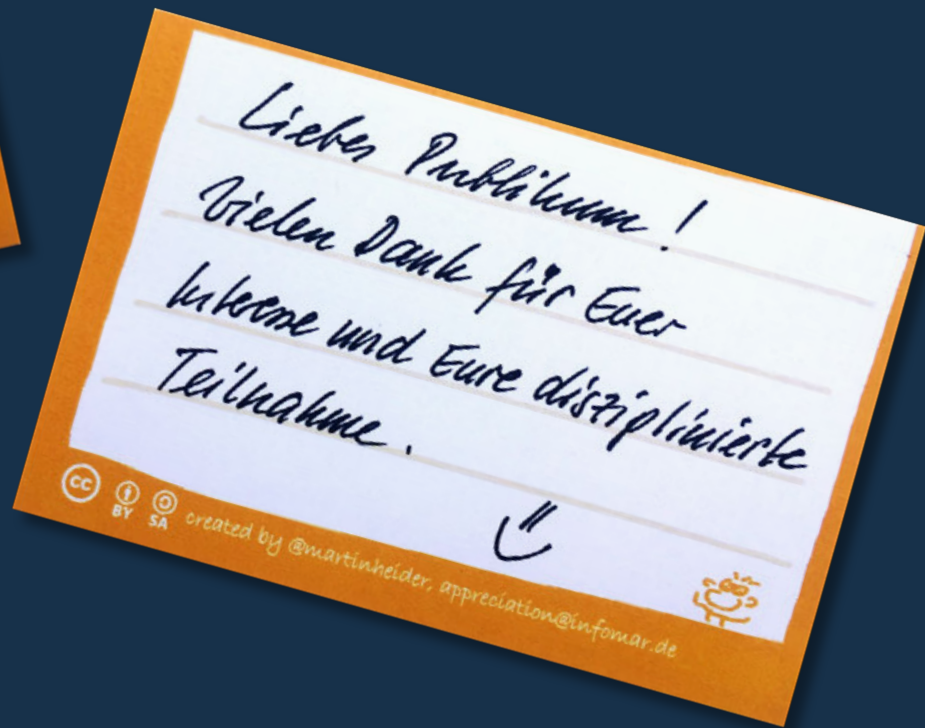 Liebes Publikum!
Vielen Dank für Euer
Interesse und Eure disziplinierte
Teilnahme.
CC BY SA created by @martinheider, appreciation@infomar.de